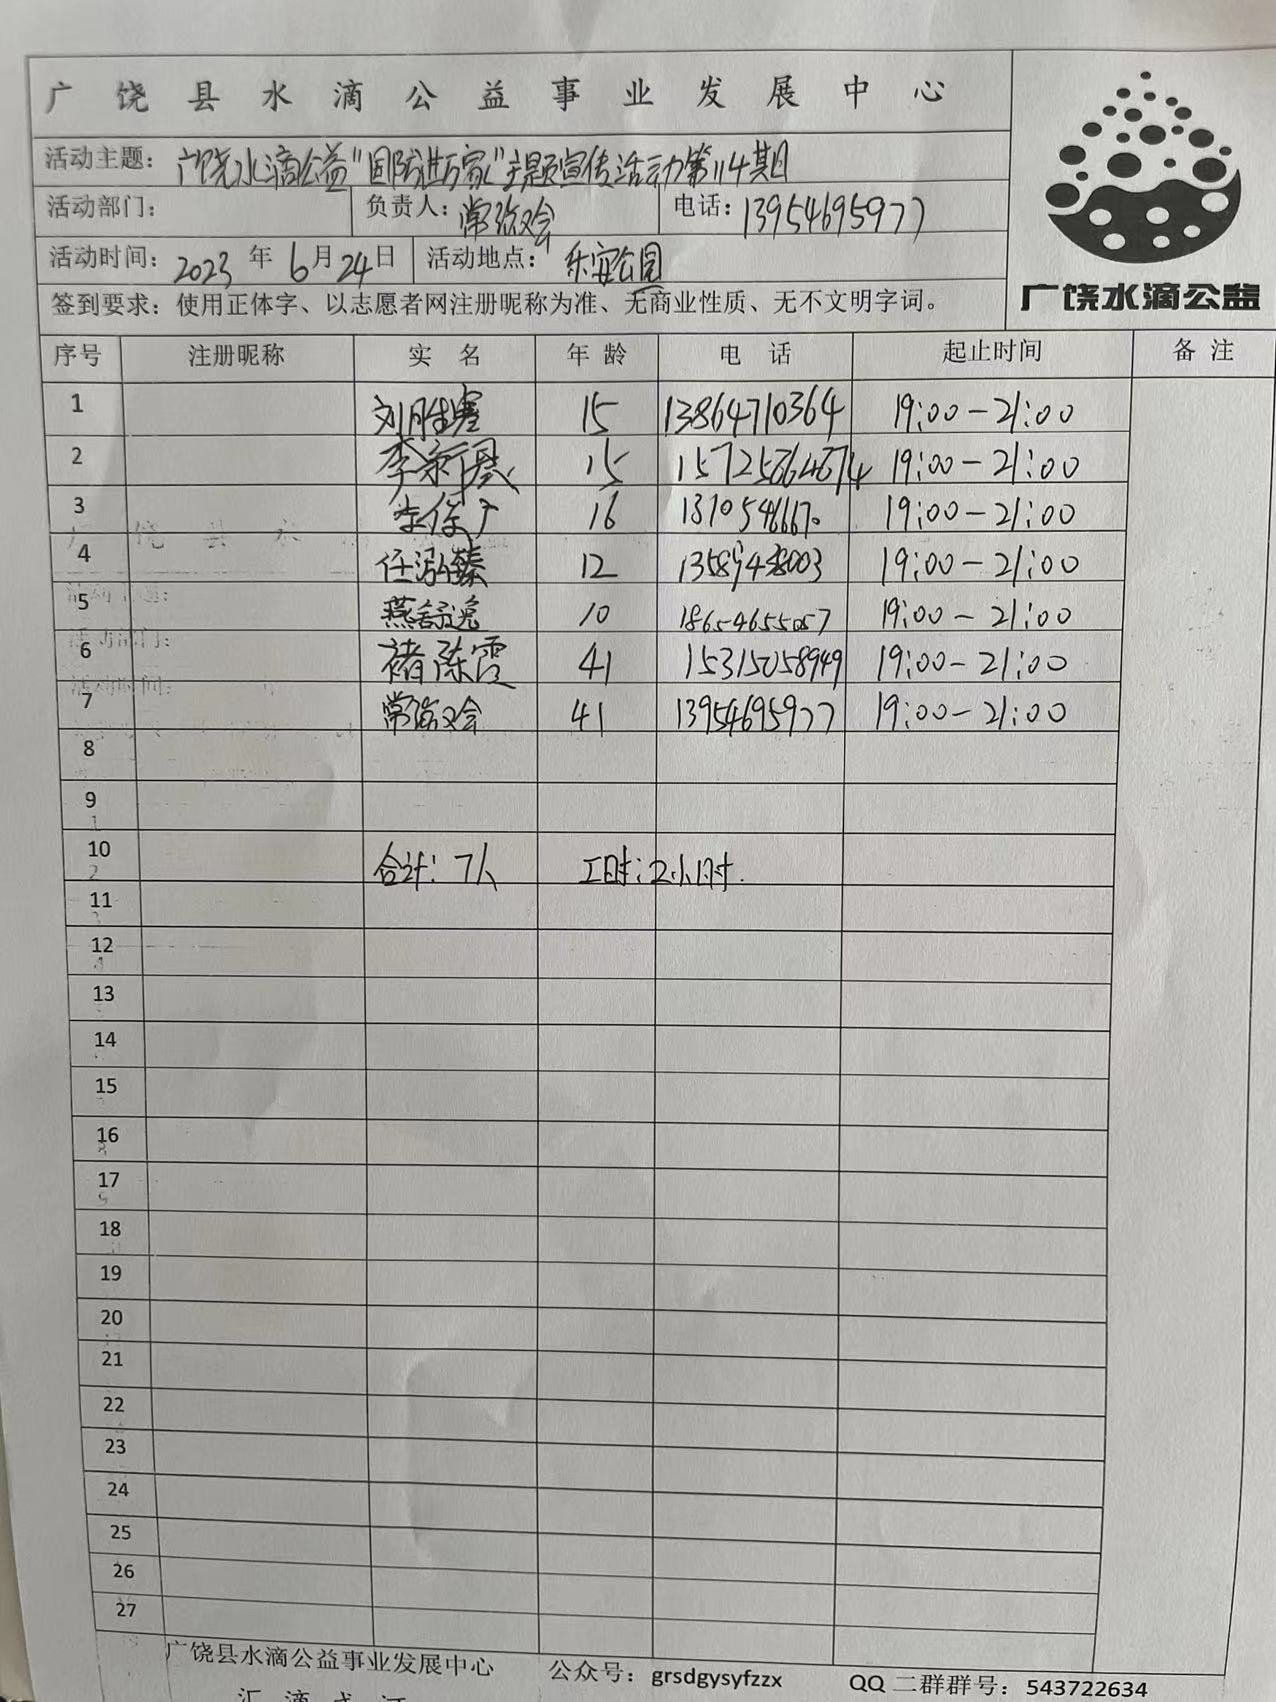 广饶县水滴公益事业发展中心
活动主题：广饶水滴公益"国防进万家"主题宣传活动第114期
活动部门： 负责人：常 会 电话：13954695977
活动时间：2023年6月24日 活动地点：乐安公园
广饶水滴公益
签到要求：使用正体字、以志愿者网注册昵称为准、无商业性质、无不文明字词。
序号 注册昵称 实名 年龄 电话 起止时间 备注
1 刘胜寒 15 13864710364 19:00-21:00
2 李 15 19:00-21:00
3 李俊 16 19:00-21:00
4 任泓臻 12 19:00-21:00
5 燕舒逸 10 18654655057 19:00-21:00
6 褚陈霞 41 15315058949 19:00-21:00
7 常 会 41 13954695977 19:00-21:00
8
9
10 合计：7人 工时：2小时.
11
12
13
14
15
16
17
18
19
20
21
22
23
24
25
26
27
广饶县水滴公益事业发展中心 公众号：grsdgysyfzzx QQ二群群号：543722634
汇滴成河